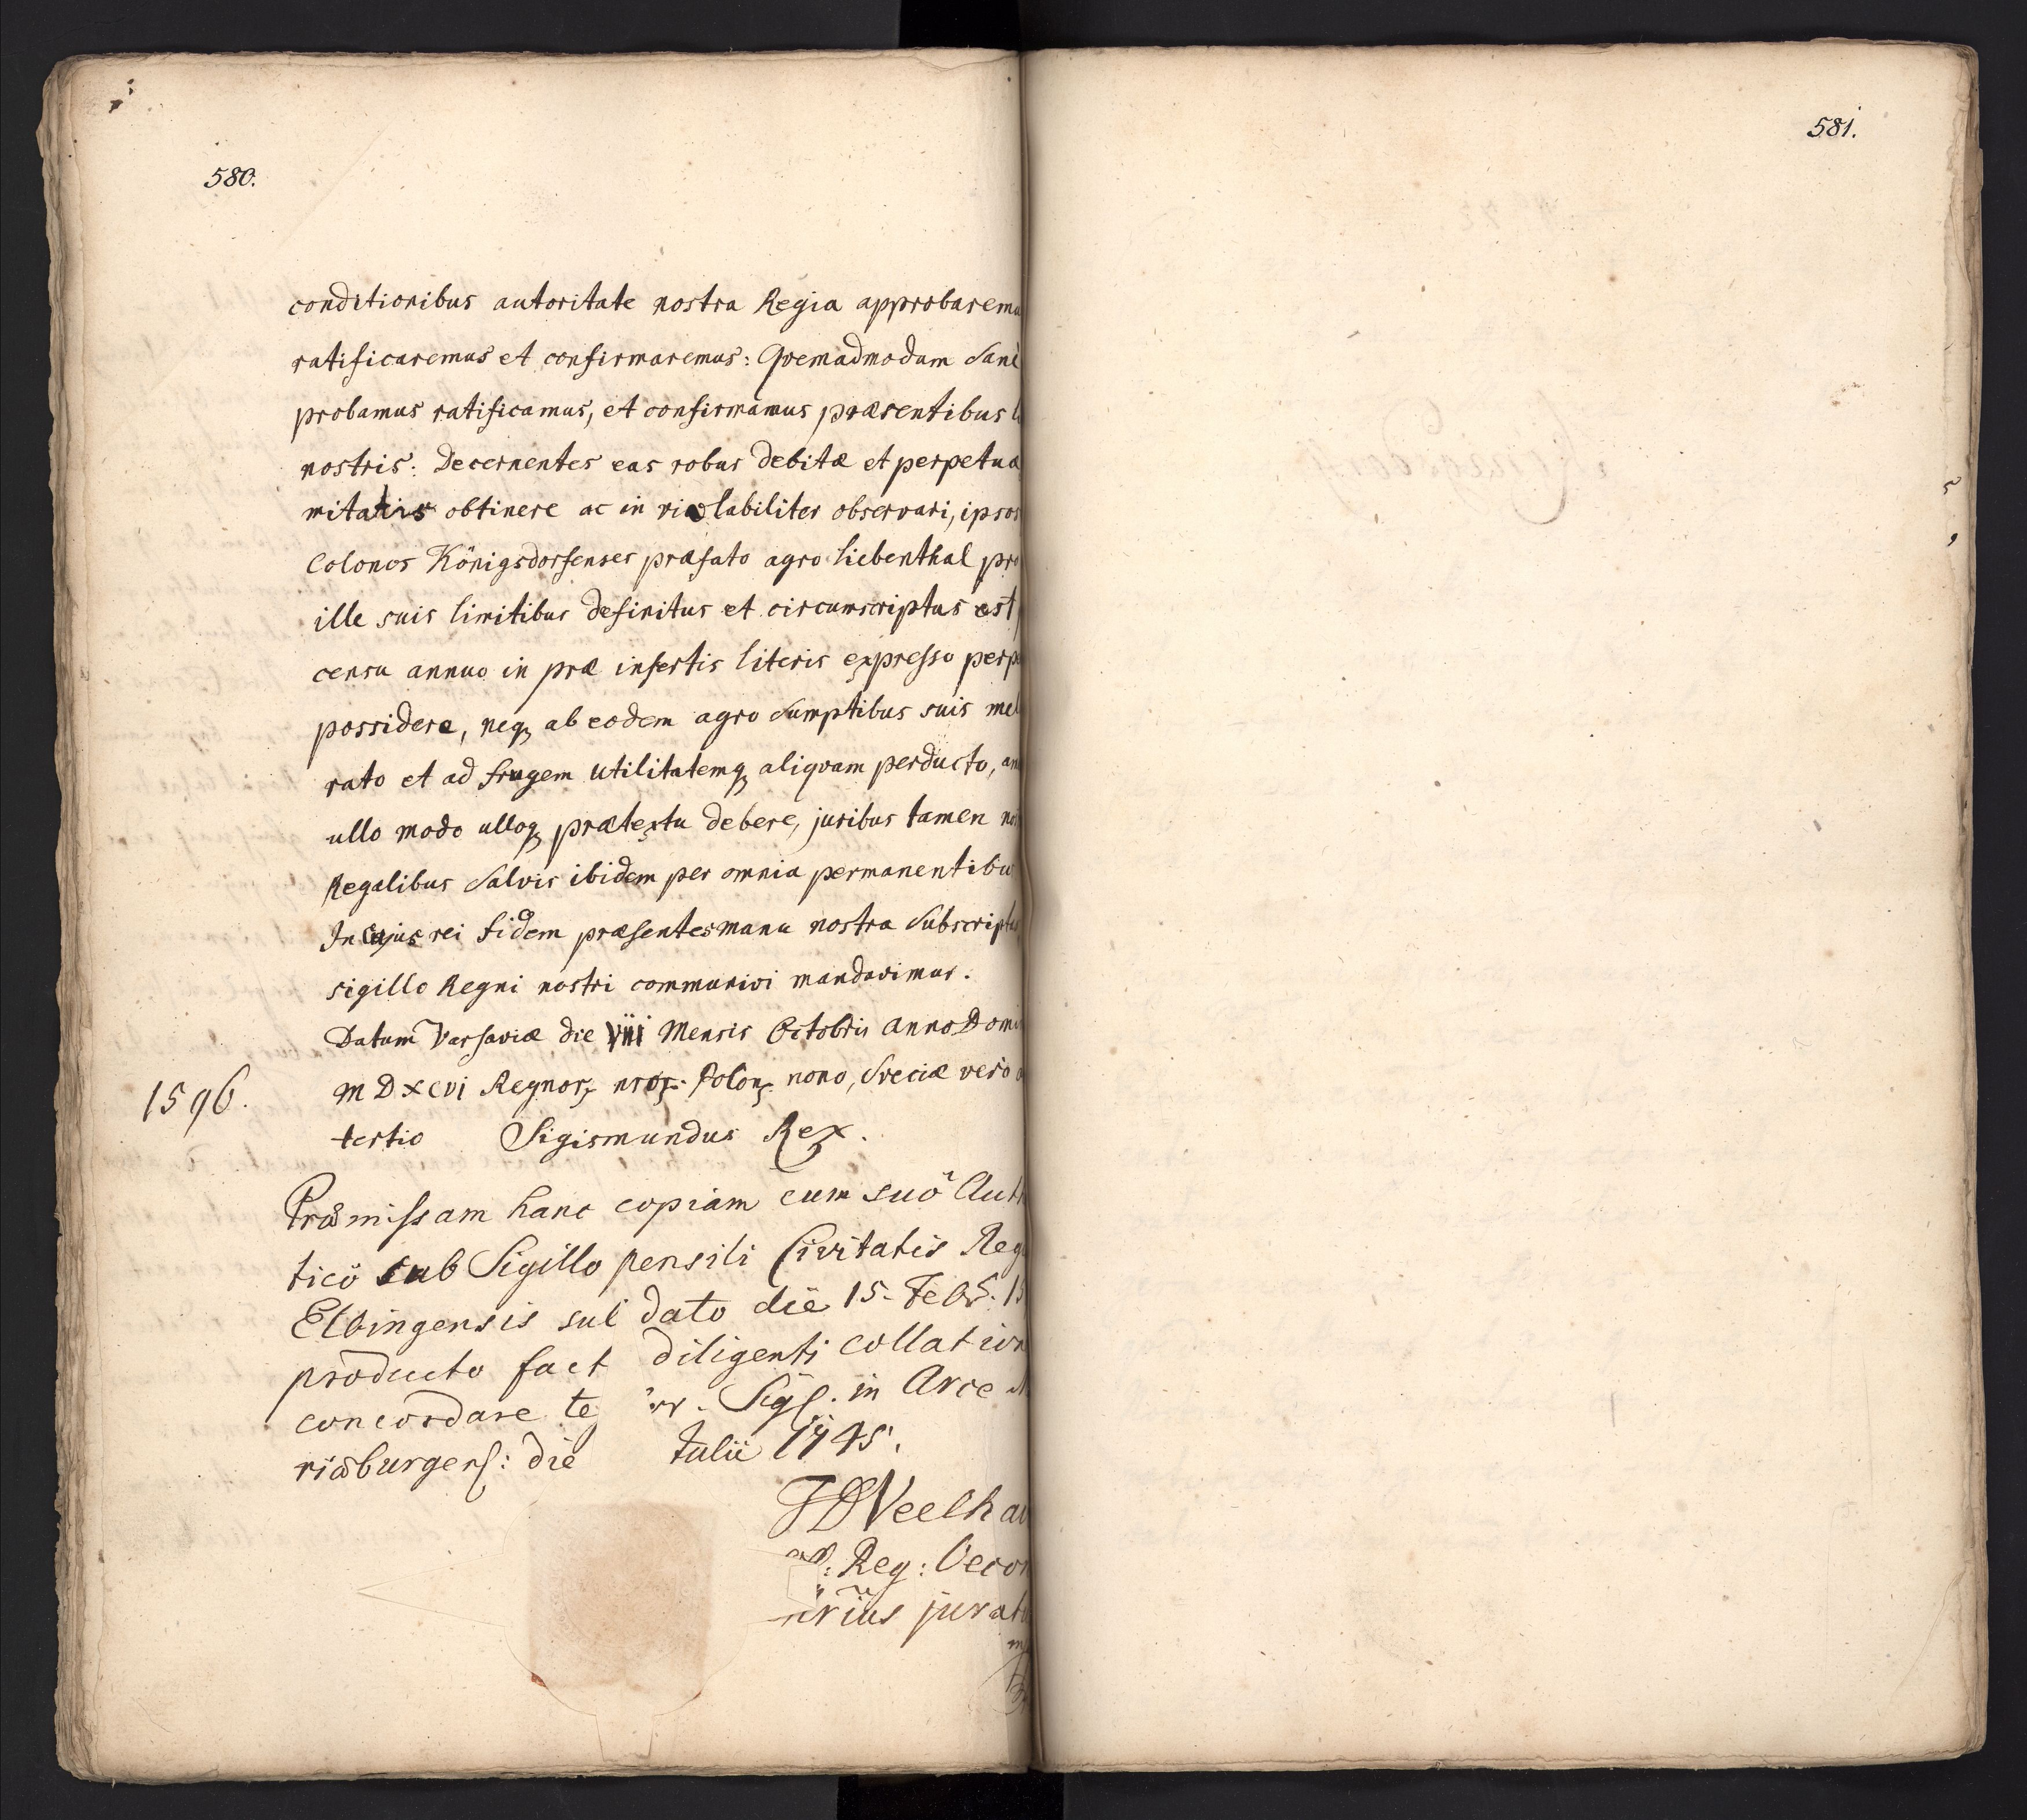 580.
conditionibus autoritate nostra Regia approbaremu
ratificaremus et confirmaremus: Qvemadmodum Sane
probamus ratificamus, et confirmamus præsentibus
nostris: Decernentes eas robur debitæ et perpetuæ
mitatis obtinere ac in violabiliter observari, ipsos
Colonos Königsdorfenses præfato agro Liebenthal pro
ille suis limitibus definitus et circumscriptus est
censu annuo in præ insertis literis expresso perp
possidere, neq₃ ab eodem agro sumptibus suis mel
rato et ad frugem utilitatemq₃ aliqvam perducto, am
ullo modo ulloq₃ prætextu debere, juribus tamen no
Regalibus Salvis ibidem per omnia permanentibu
In cujus rei fidem præsentes manu nostra Subscript
sigillo Regni nostri communivi mandavimus.
Datum Varsaviæ die viii Mensis Octobris anno Domi
1596. M D xcvi Regnor. nror. Polon. nono, Sveciæ vero
tertio Sigismundus Rex.
Præmissam hanc copiam cum suö Auth
ticö sub Sigillo pensili Civitatis Reg
Elbingensis sub dato die 15. Febr. 15
producto fact diligenti collation
concordare te Sigl. in Arce
riæburgens: die Julii 1745.
JDVeelha
Reg: Oecon
rius jurat
581.